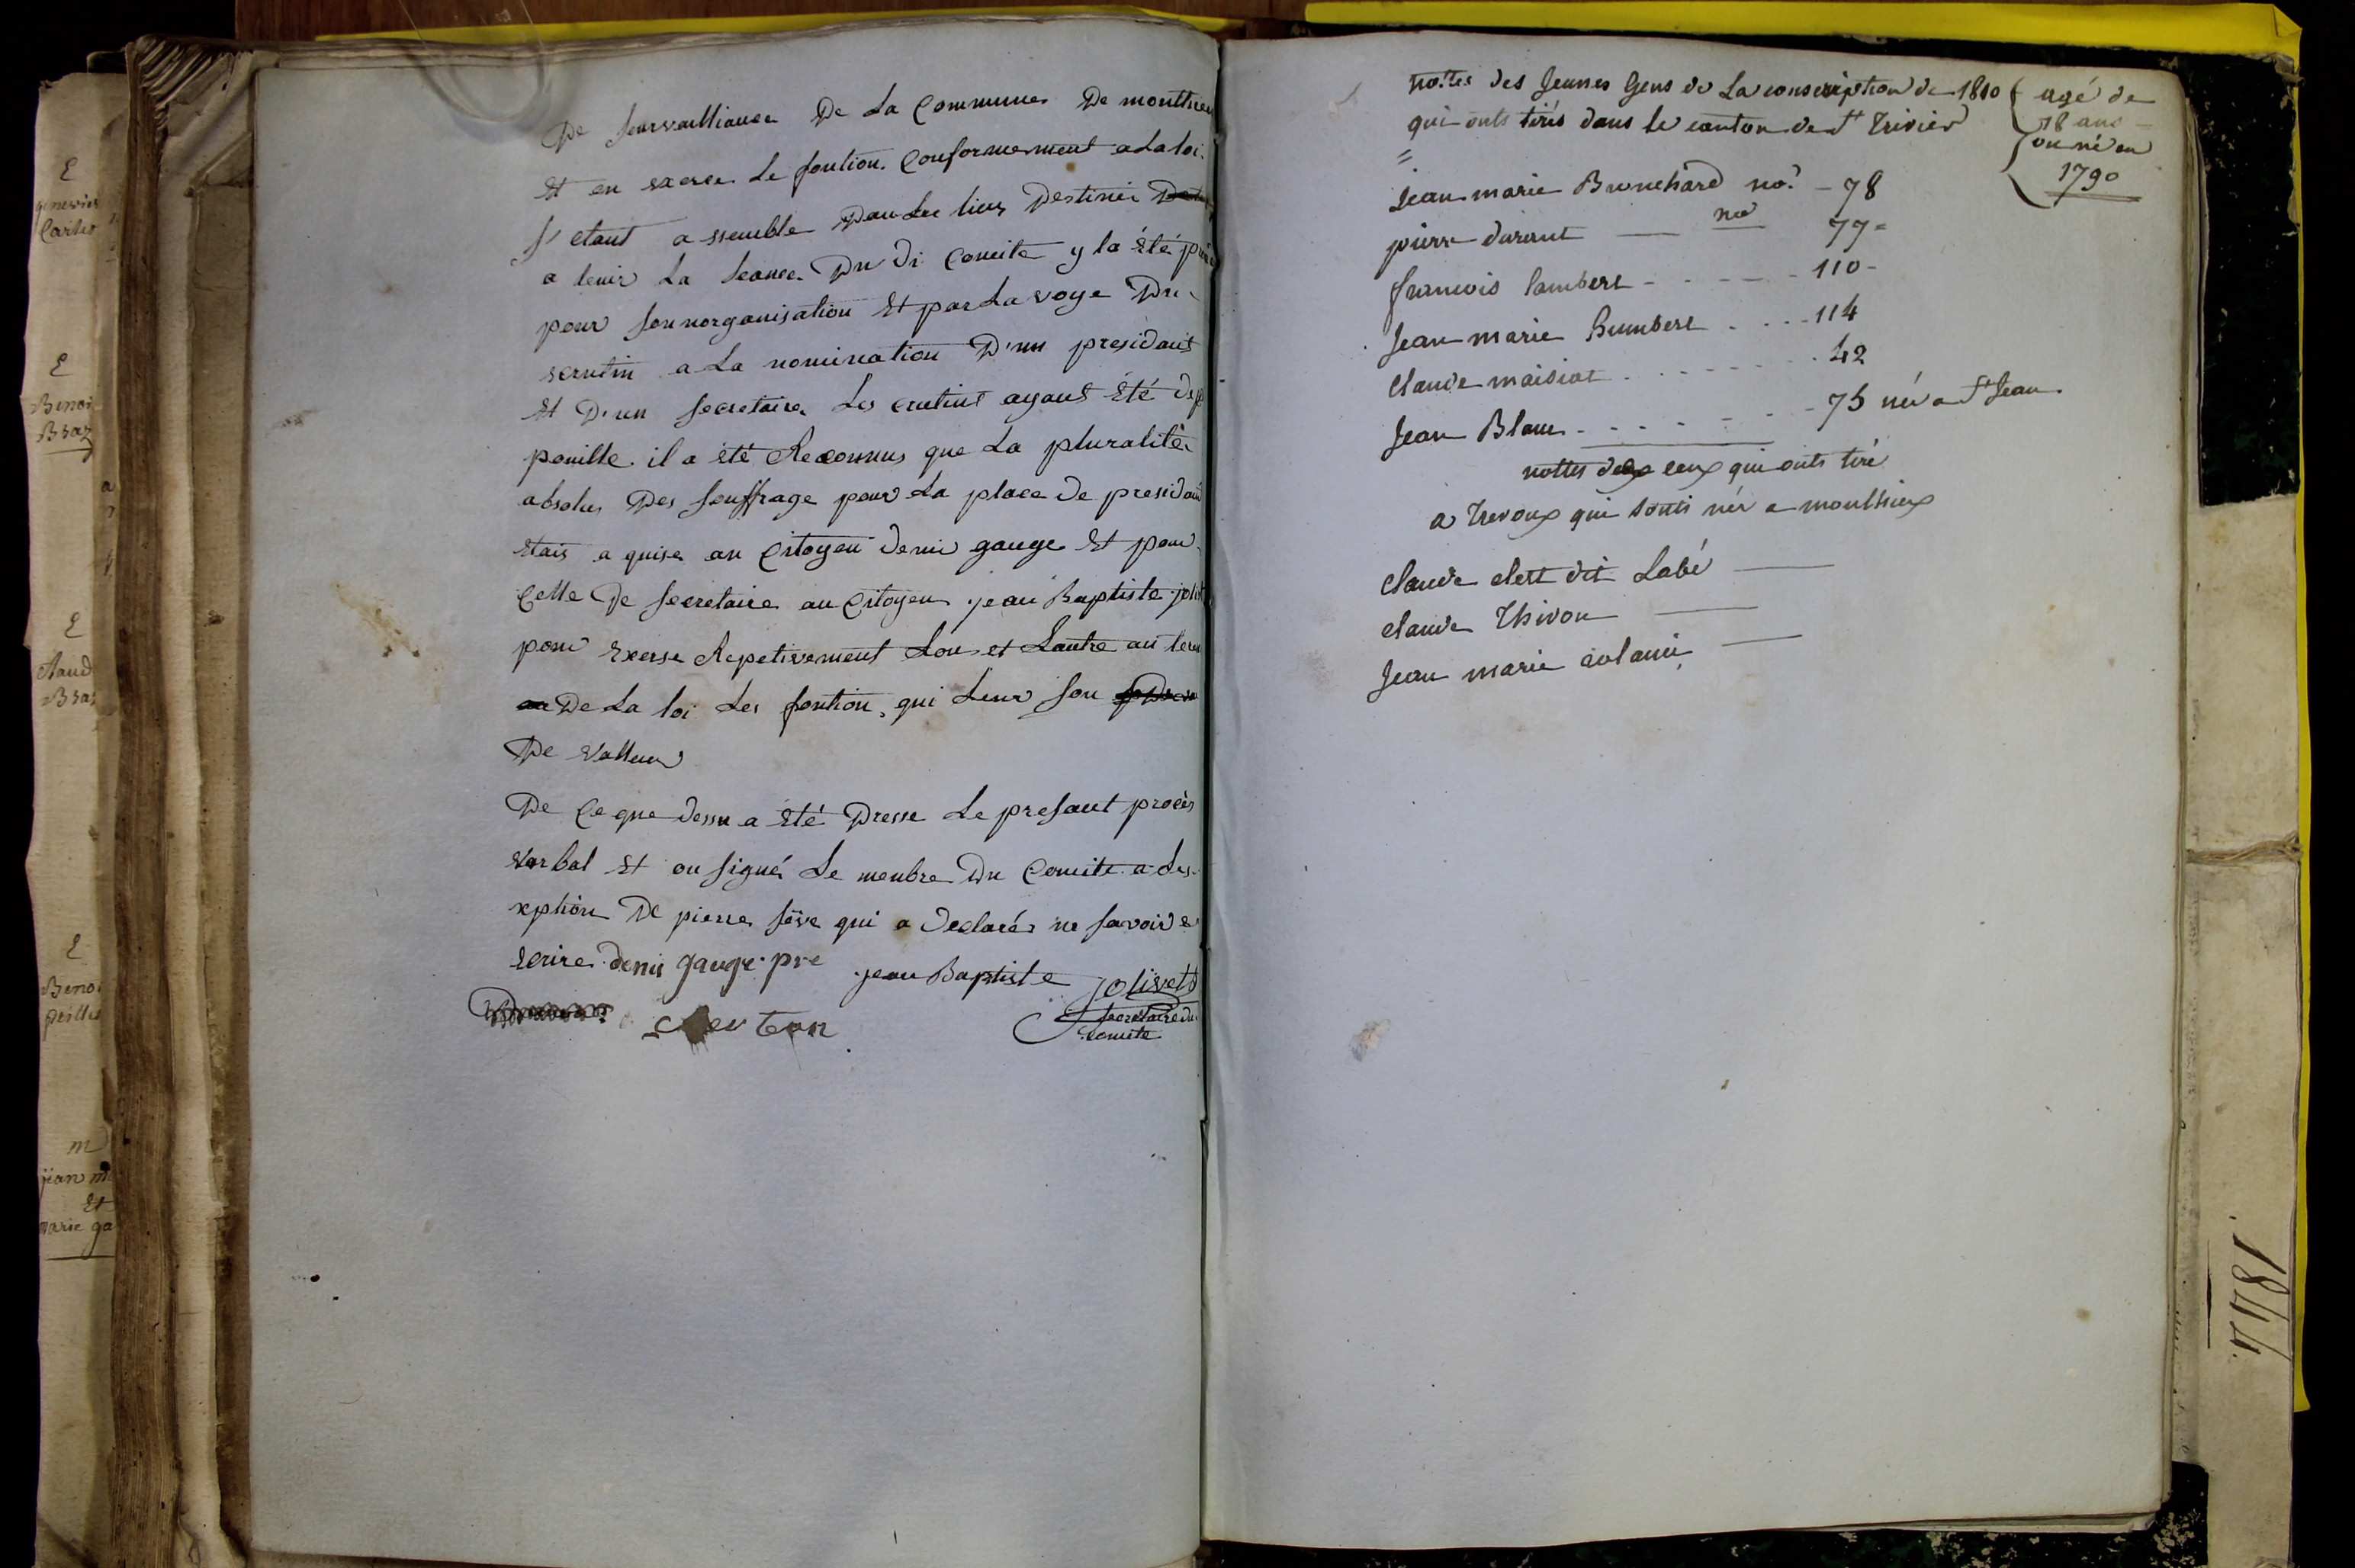 De Seurvailliance De La Commune De monttieu
Et en Exerce Le fontion Conformement a La loi
S'etant a ssemble Dans Le lieux Destinée
a tenir La Seance Du di Comite y la Été
pour Sonnorganisation Et par La voye Du
scrutin a La nomination D'un presidant
Et D'un Secretaire Les crutins ayant Été de
pouillé il a Été Reconnus que La pluralité
absolue Des Souffrage pour La place De presidant
Etais a quise au Citoyen denis gauge Et pour
Celle De Secretaire au Citoyen jean Baptiste
pour Exerse Repetivement Lon et Lautre au
De La loi Les fontion qui Leur Son
De
De Ce que dessu a Été Dresse Le presant procès
Verbal Et on signé Le menbre Du Comite a Les
xption De pierre Séve qui a declaré ne savoir
Ecrire denis gauge pre jean Baptiste jolivett
Secretaire du
Comite
notes des Jeunes Gens de La conscription de 1810
qui onts tirés dans le canton de St Trivier
agé de
18 ans
ou né en
1790
Jean marie Brunchard no. 78
pierre durant no 77
francois lambert 110
Jean marie humbert 114
Claude maisiat 42
Jean Blanc 75 né a St Jean
nottes de ceux qui onts tiré
a Trevoux qui sonts nés a monthieux
Claude clert dit Labé
claude Thivon
Jean marie
E
genevie
Carter
E
Benoi
Braz
E
Claud
Braz
E
Beno
m
jean m
Et
marie ga
1844